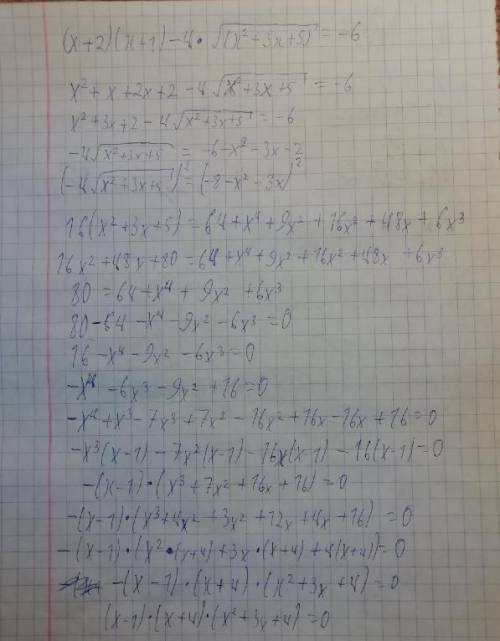 (x+2)(x+1)-4·√(x²+3x+5)=-6
x²+x+2x+2-4√x²+3x+5=-6
x²+3x+2-4√x²+3x+5=-6
-4√x²+3x+5=-6-x²-3x-2
(-4√x²+3x+5)²=(-8-x²-3x)²
16(x²+3x+5)=64+x⁴+9x²+16x²+48x+6x³
16x²+48x+80=64+x⁴+9x²+16x²+48x+6x³
80=64+x⁴+9x²+6x³
80-64-x⁴-9x²-6x³=0
16-x⁴-9x²-6x³=0
-x⁴-6x³-9x²+16=0
-x⁴+x³-7x³+7x²-16x²+16x-16x+16=0
-x³(x-1)-7x²(x-1)-16x(x-1)-16(x-1)=0
-(x-1)·(x³+7x²+16x+16)=0
-(x-1)·(x³+4x²+3x²+12x+4x+16)=0
-(x-1)·(x²·(x+4)+3x·(x+4)+4(x+4))=0
-(x-1)·(x+4)·(x²+3x+4)=0
(x-1)·(x+4)·(x²+3x+4)=0